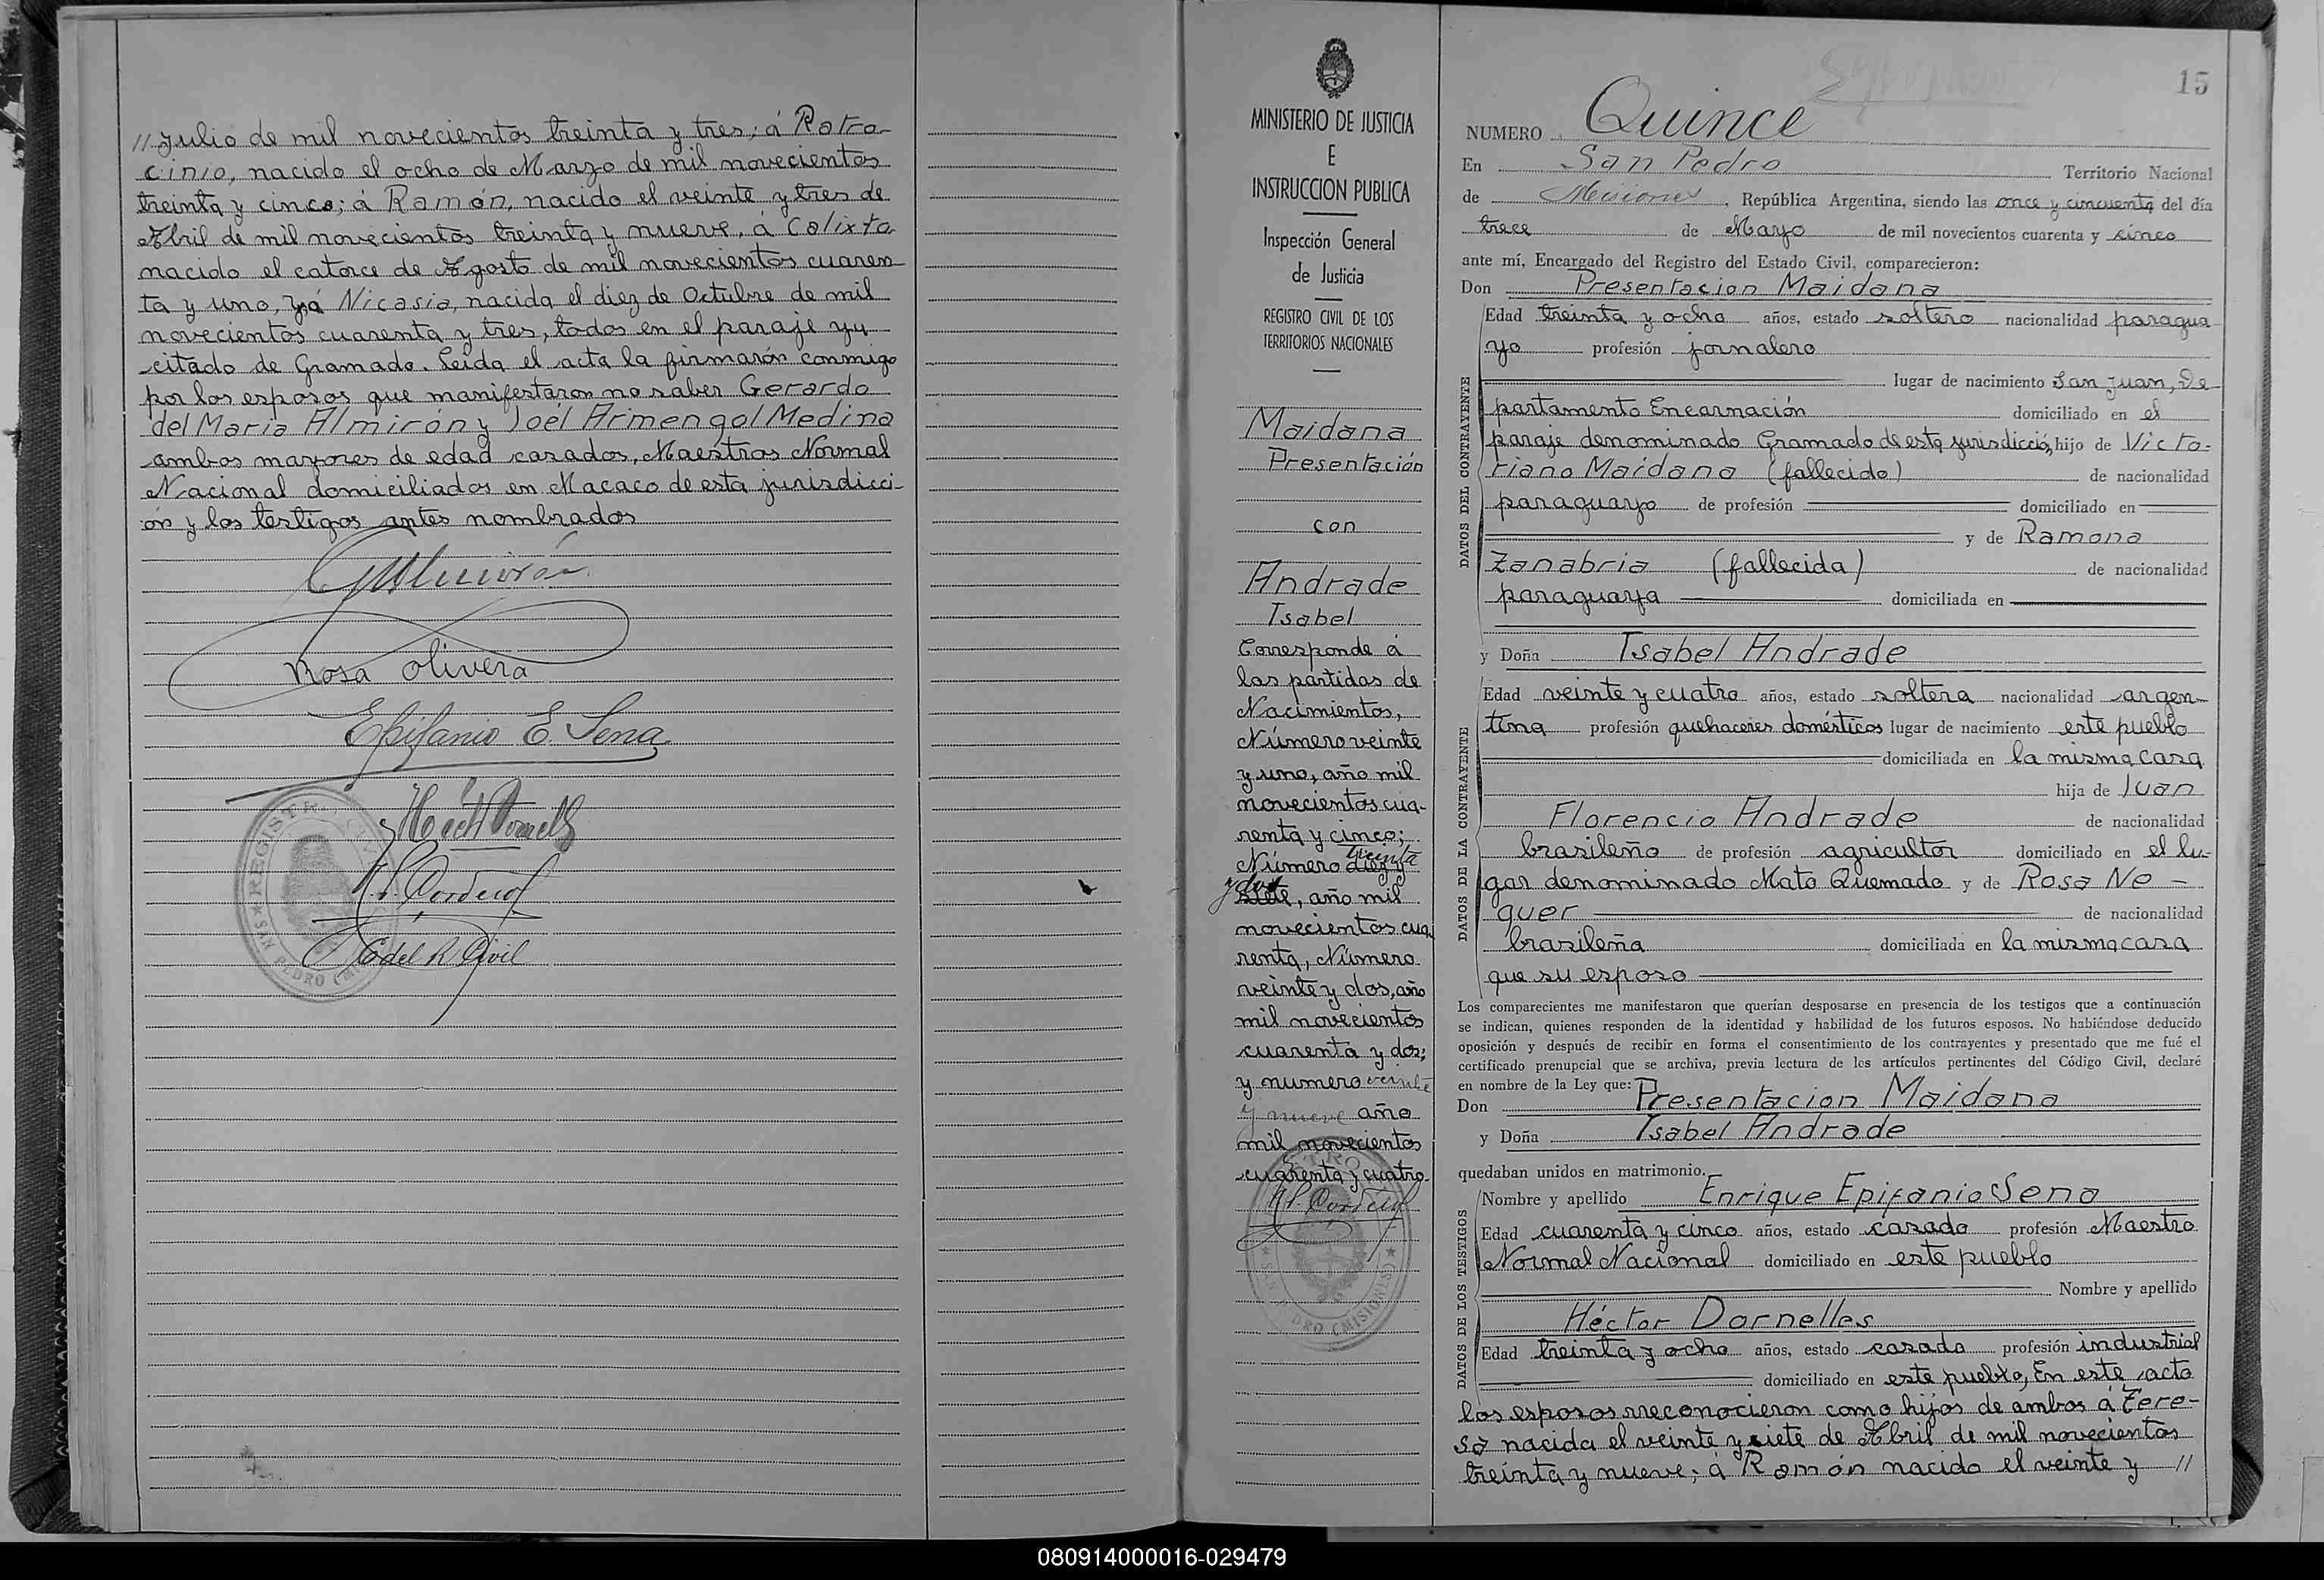 // Julio de mil novecientos treinta y tres; á Patro-
cinio, nacido el ocho de Marzo de mil novecientos
treinta y cinco; á Ramón, nacido el veinte y tres de
Abril de mil novecientos treinta y nueve, á Calixto
nacido el catorce de Agosto de mil novecientos cuaren-
ta y uno, y á Nicasia, nacida el diez de Octubre de mil
novecientos cuarenta y tres, todos en el paraje ya
citado de Gramado. Leida el acta la firmarón conmigo
por los esposos que manifestaron no saber Gerardo
del Maria Almirón y Joél Armengol Medina
ambos mayores de edad casados, Maestros Normal
Nacional domiciliados en Macaco de esta jurisdicci-
ón y los testigos antes nombrados
GMAlmirón
Rosa Olivera
Epifanio E. Sena
E del R Civil
REGISTRO CIVIL
SAN PEDRO (MISIONES)
MINISTERIO DE JUSTICIA
E
INSTRUCCION PUBLICA
Inspección General
de Justicia
REGISTRO CIVIL DE LOS
TERRITORIOS NACIONALES
Maidana
Presentación
con
Andrade
Isabel
Corresponde á
las partidas de
Nacimientos,
Número veinte
y uno, año mil
novecientos cua-
renta y cinco;
Número diez y treinta
siete y dos, año mil
novecientos cua
renta, Número
veinte y dos, año
mil novecientos
cuarenta y dos;
y numero veinte
y nueve año
mil novecientos
cuarenta y cuatro.
SAN PEDRO (MISIONES)
15
NUMERO Quince
En San Pedro Territorio Nacional
de Misiones, República Argentina, siendo las once y cincuenta del día
trece de Mayo de mil novecientos cuarenta y cinco
ante mí, Encargado del Registro del Estado Civil, comparecieron:
Don Presentacion Maidana
DATOS DEL CONTRAYENTE
Edad treinta y ocho años, estado soltero nacionalidad paragua
yo profesión jornalero
lugar de nacimiento San Juan, De-
partamento Encarnación domiciliado en el
paraje denominado Gramado de esta jurisdicción, hijo de Victo-
riano Maidana (fallecido) de nacionalidad
paraguayo de profesión domiciliado en
y de Ramona
Zanabria (fallecida) de nacionalidad
paraguaya domiciliada en
y Doña Isabel Andrade
DATOS DE LA CONTRAYENTE
Edad veinte y cuatro años, estado soltera nacionalidad argen-
tina profesión quehaceres domésticos lugar de nacimiento este pueblo
domiciliada en la misma casa
hija de Juan
Florencio Andrade de nacionalidad
brasileño de profesión agricultor domiciliado en el lu-
gar denominado Mato Quemado y de Rosa No-
guer de nacionalidad
brasileña domiciliada en la misma casa
que su esposo
Los comparecientes me manifestaron que querían desposarse en presencia de los testigos que a continuación
se indican, quienes responden de la identidad y habilidad de los futuros esposos. No habiéndose deducido
oposición y después de recibir en forma el consentimiento de los contrayentes y presentado que me fué el
certificado prenupcial que se archiva, previa lectura de los artículos pertinentes del Código Civil, declaré
en nombre de la Ley que:
Don Presentacion Maidana
y Doña Isabel Andrade
quedaban unidos en matrimonio.
DATOS DE LOS TESTIGOS
Nombre y apellido Enrique Epifanio Sena
Edad cuarenta y cinco años, estado casado profesión Maestro
Normal Nacional domiciliado en este pueblo
Nombre y apellido
Héctor Dornelles
Edad treinta y ocho años, estado casado profesión industrial
domiciliado en este pueblo, En este acto
los esposos rreconocieron como hijos de ambos á Tere-
sa nacida el veinte y siete de Abril de mil novecientos
treinta y nueve; a Ramón nacido el veinte y //
080914000016-029479